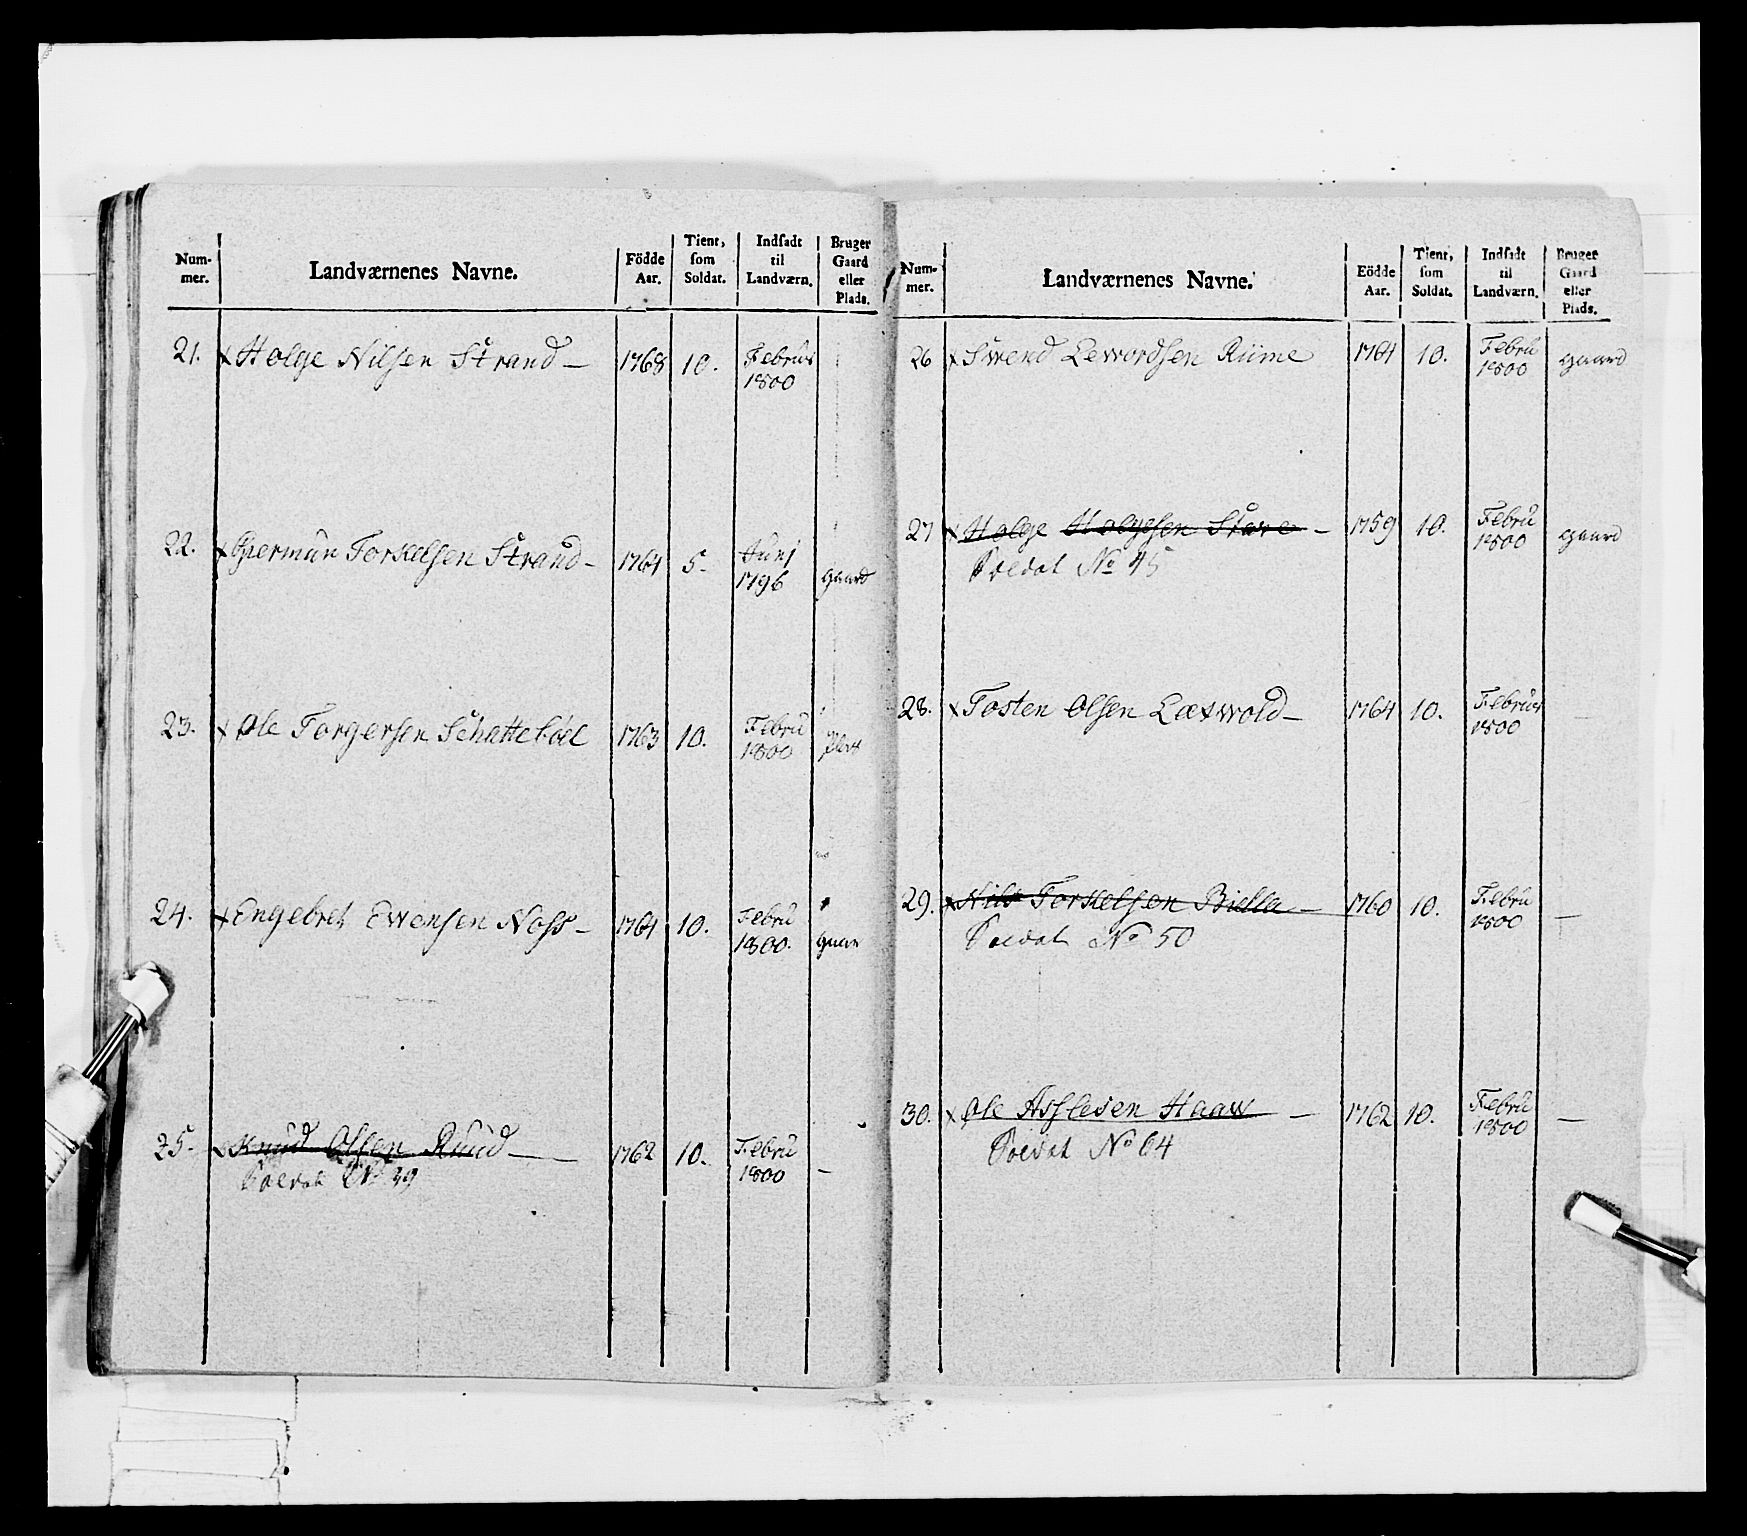 Num- mer. Landværnenes Navne. Födde Aar. Tient, som Soldat. Indsadt til Landværn. Bruger Gaard eller Plads.
21. x Holge Nilsen Strand — 1768 10. Februr
1800
22. x Giermün Torkelsen Strand — 1764 5. Junj
1796 gaard
23. x Ole Torgersen Schattebøel 1763 10. Febru
1800 Plas
24. x Engebret Ewensen Nass — 1764 10. Febru
1800. gaar
25. x Knud Olsen Ruud — 1762 10. Febru
Soldat No 39 1800 —
Num- mer. Landværnenes Navne. Födde Aar. Tient, som Soldat. Indsadt til Landværn. Bruger Gaard eller Plads.
26 x Swend Lewordsen Rüme 1764 10. Febru
1800 gaard
27 x Holge Holgesen Stave — 1759 10. Febru
Soldat No 45 1800 gaard
28. x Tosten Olsen Laxwold — 1764 10. Februr
1800 —
29. x Nils Torkelsen Biella — 1760 10. Febru
Soldat No 50 1800 —
30. x Ole Aslesen Haaw — 1762 10. Febru
Soldat No 64 1800 —